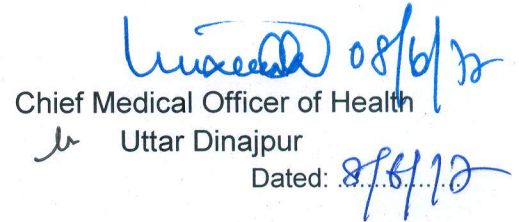 08/6/12
Chief Medical Officer of Health
Uttar Dinajpur
Dated: 8/6/12